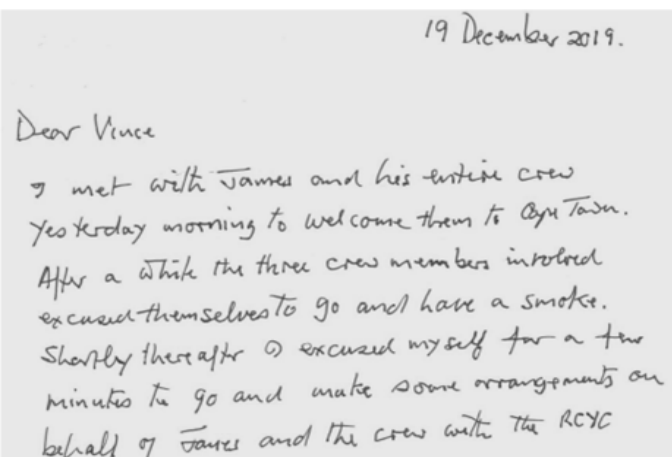 19 December 2019.
Dear Vince
I met with James and his entire crew
yesterday morning to welcome them to Cape Town.
After a while the three crew members involved
excused themselves to go and have a smoke.
Shortly thereafter I excused myself for a few
minutes to go and make some arrangements on
behalf of James and the crew with the RCYC